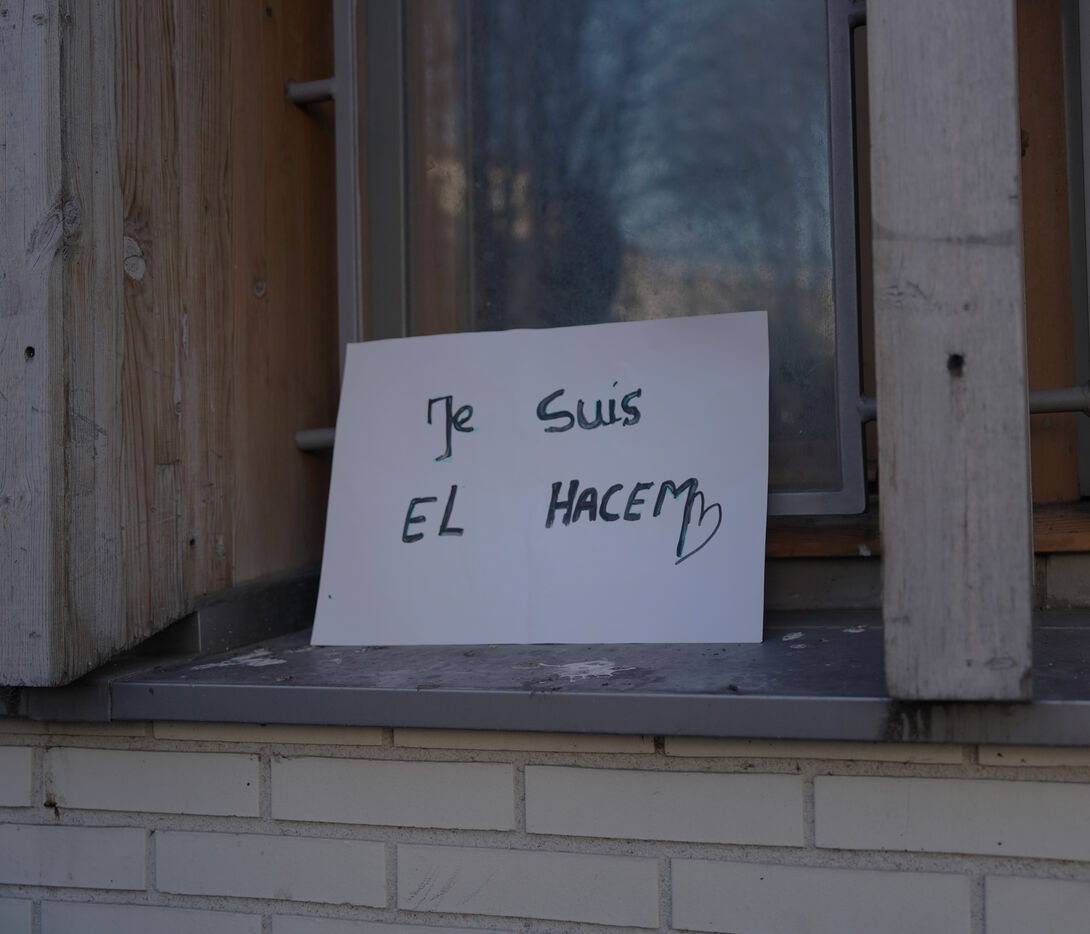 Je Suis
EL HACEM